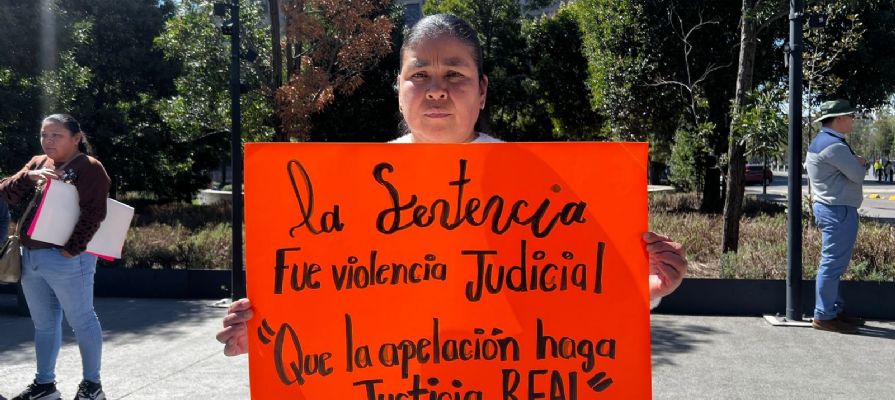 la Sentencia
Fue violencia Judicial
"Que la apelación haga
Justicia REAL"